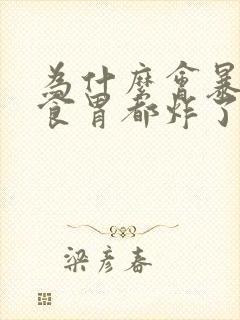 為什麼會暴
食胃都炸了
梁彥春